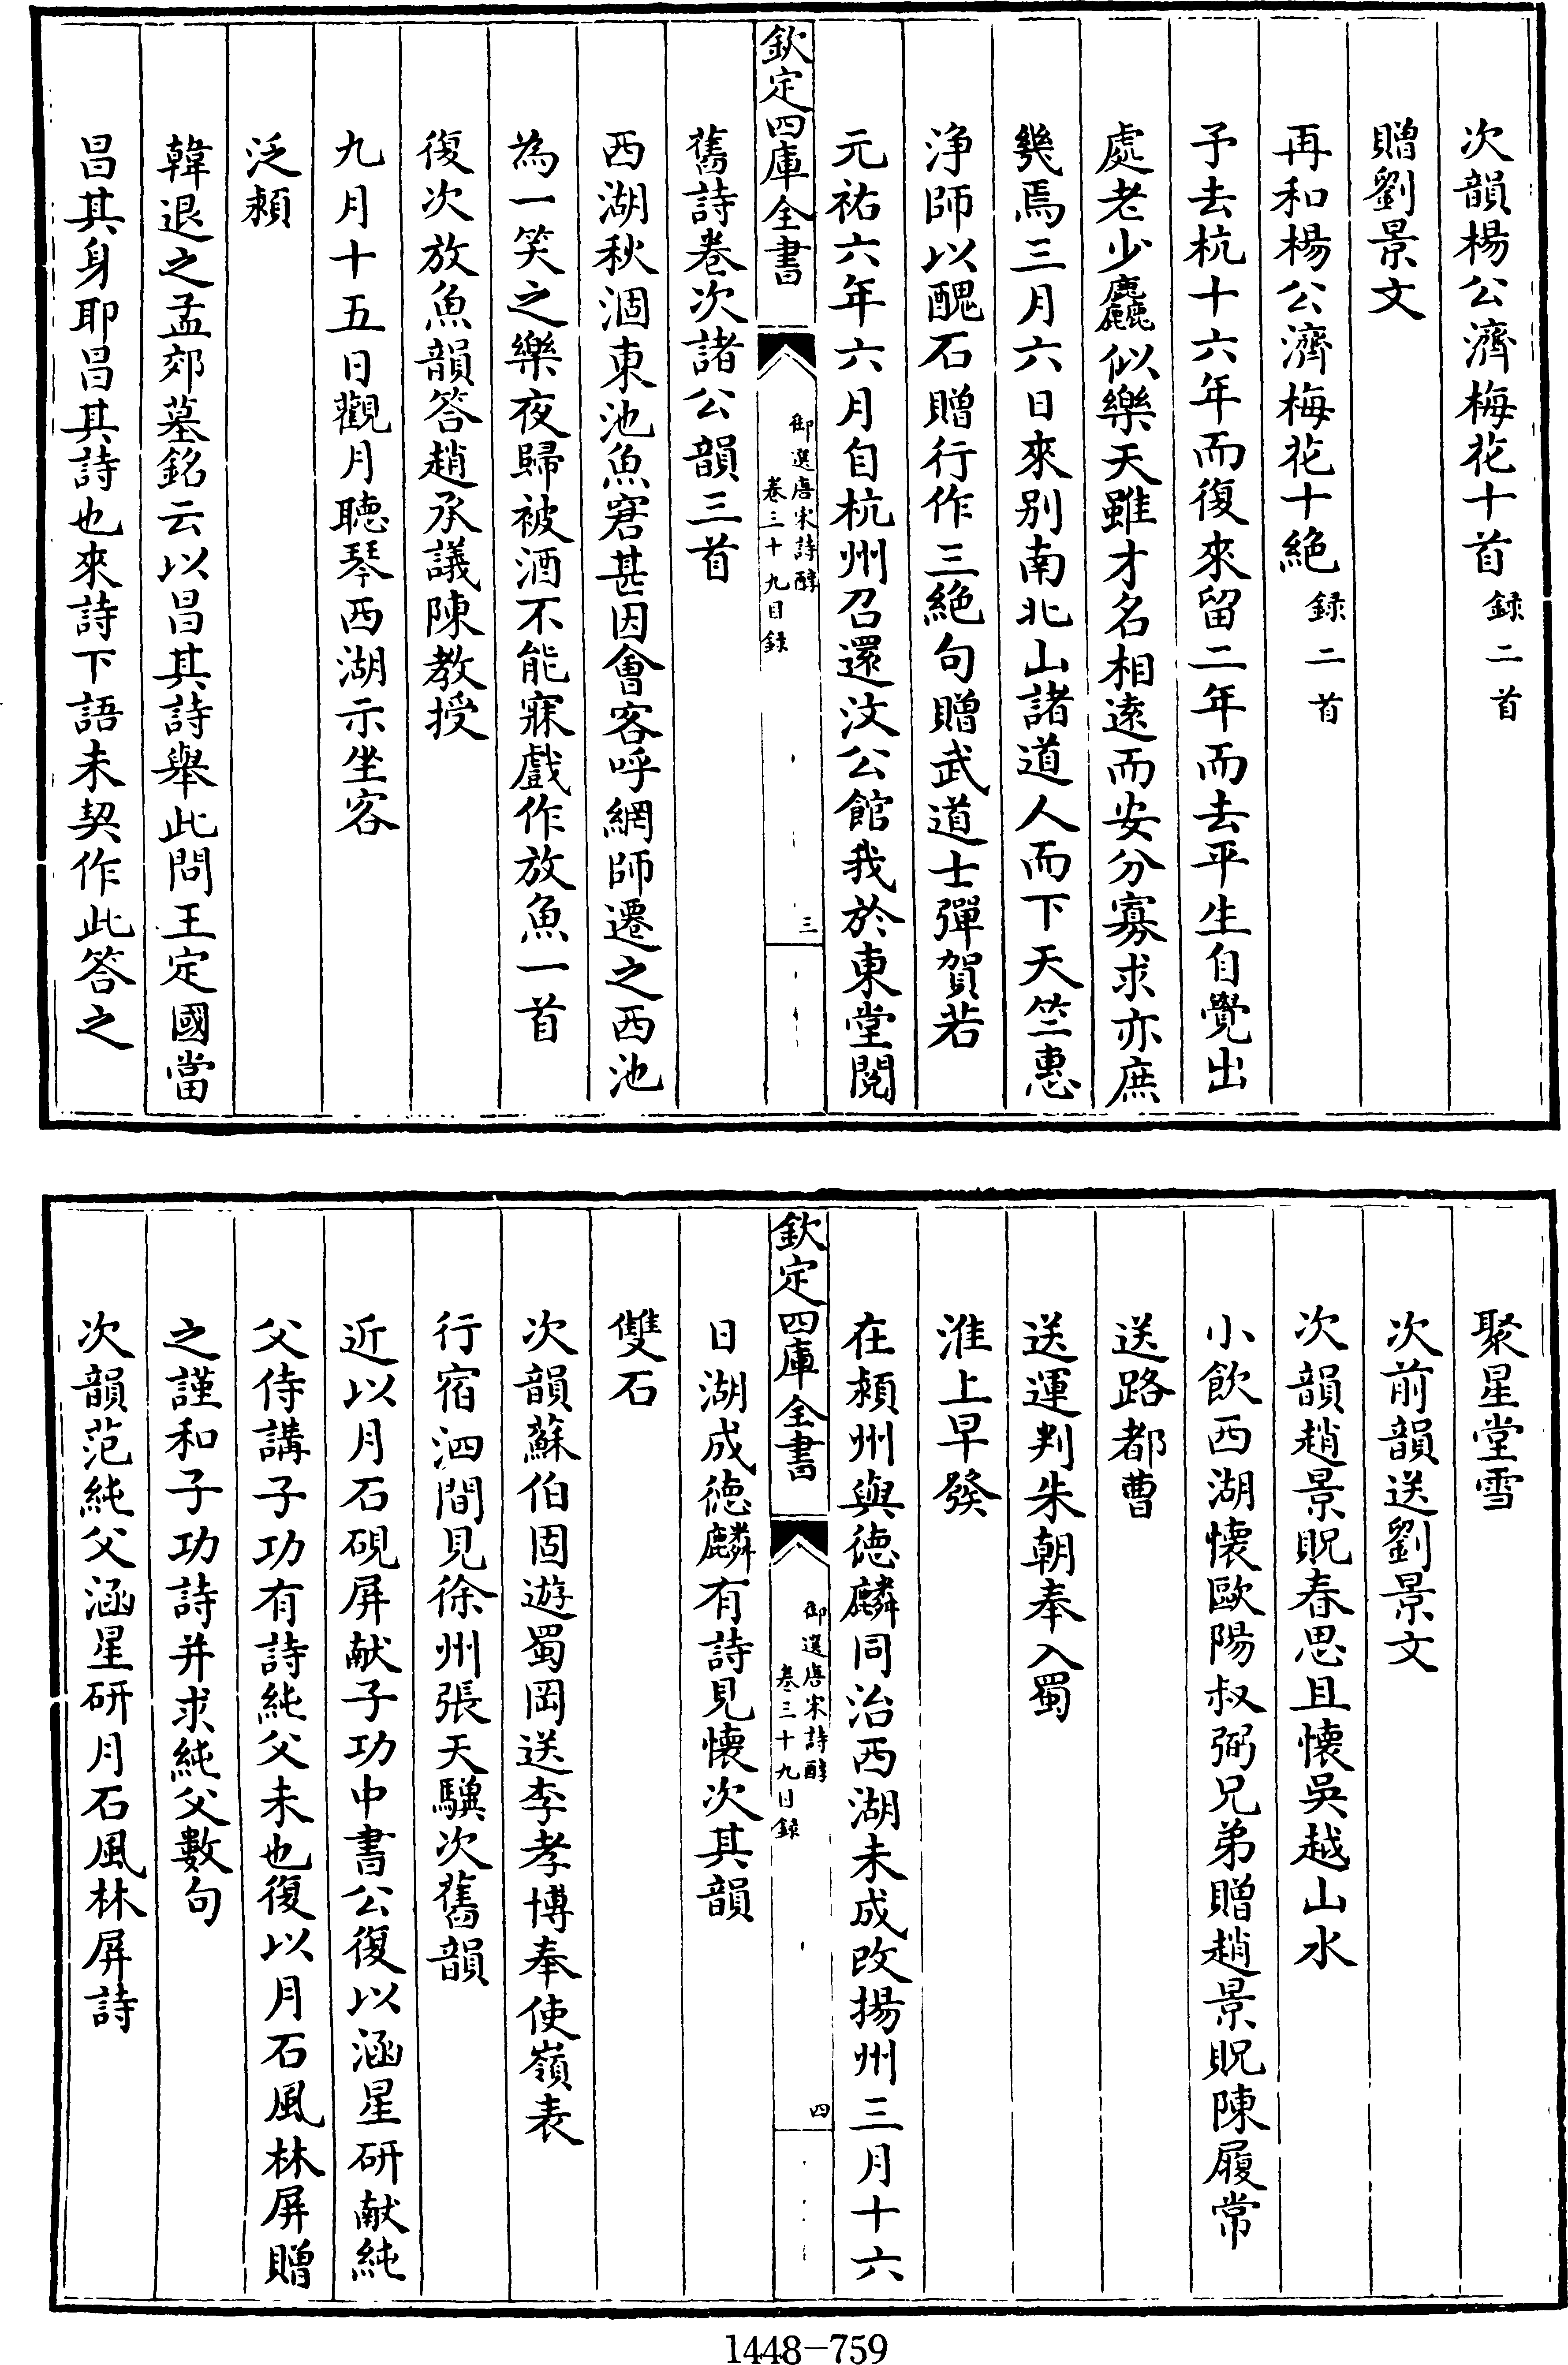 次韻楊公濟梅花十首録二首
贈劉景文
再和楊公濟梅花十絶録二首
予去杭十六年而復來留二年而去平生自覺出
處老少麤似樂天雖才名相遠而安分寡求亦庶
幾焉三月六日來别南北山諸道人而下天竺惠
浄師以醜石贈行作三絶句贈武道士彈賀若
元祐六年六月自杭州召還汶公館我於東堂閲
欽定四庫全書
御選唐宋詩醇
卷三十九目録
三
舊詩卷次諸公韻三首
西湖秋涸東池魚窘甚因會客呼網師遷之西池
為一笑之樂夜歸被酒不能寐戲作放魚一首
復次放魚韻答趙承議陳教授
九月十五日觀月聽琴西湖示坐客
泛潁
韓退之孟郊墓銘云以昌其詩舉此問王定國當
昌其身耶昌其詩也來詩下語未契作此答之
聚星堂雪
次前韻送劉景文
次韻趙景貺春思且懷吳越山水
小飲西湖懷歐陽叔弼兄弟贈趙景貺陳履常
送路都曹
送運判朱朝奉入蜀
淮上早發
在潁州與德麟同治西湖未成改揚州三月十六
欽定四庫全書
御選唐宋詩醇
卷三十九目録
四
日湖成德麟有詩見懷次其韻
雙石
次韻蘇伯固遊蜀岡送李孝博奉使嶺表
行宿泗間見徐州張天驥次舊韻
近以月石硯屏献子功中書公復以涵星研献純
父侍講子功有詩純父未也復以月石風林屏贈
之謹和子功詩并求純父數句
次韻范純父涵星研月石風林屏詩
1448-759